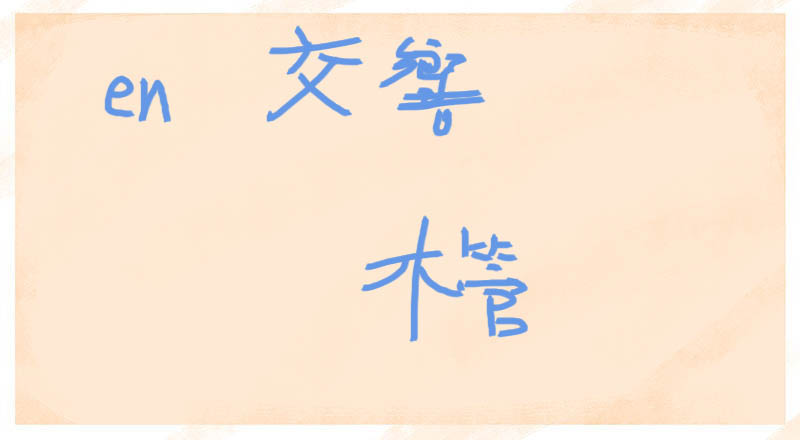 en 交響
木管